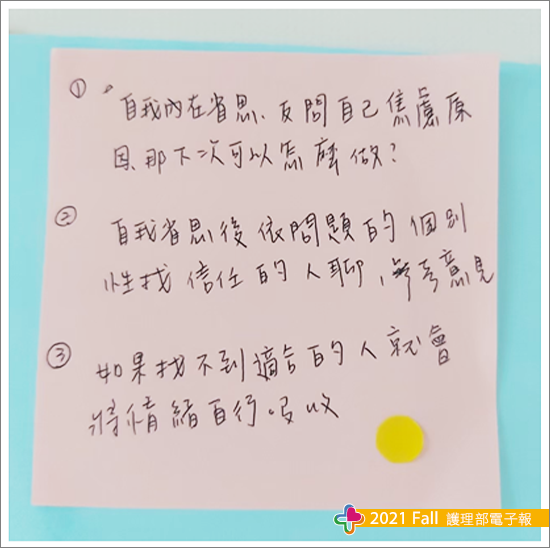 ① 自我內在省思、反問自己焦慮原
因,那下次可以怎麼做?
② 自我省思後依問題的個別
性找信任的人聊,參考意見
③ 如果找不到適合的人就會
將情緒自行吸收
2021 Fall 護理部電子報